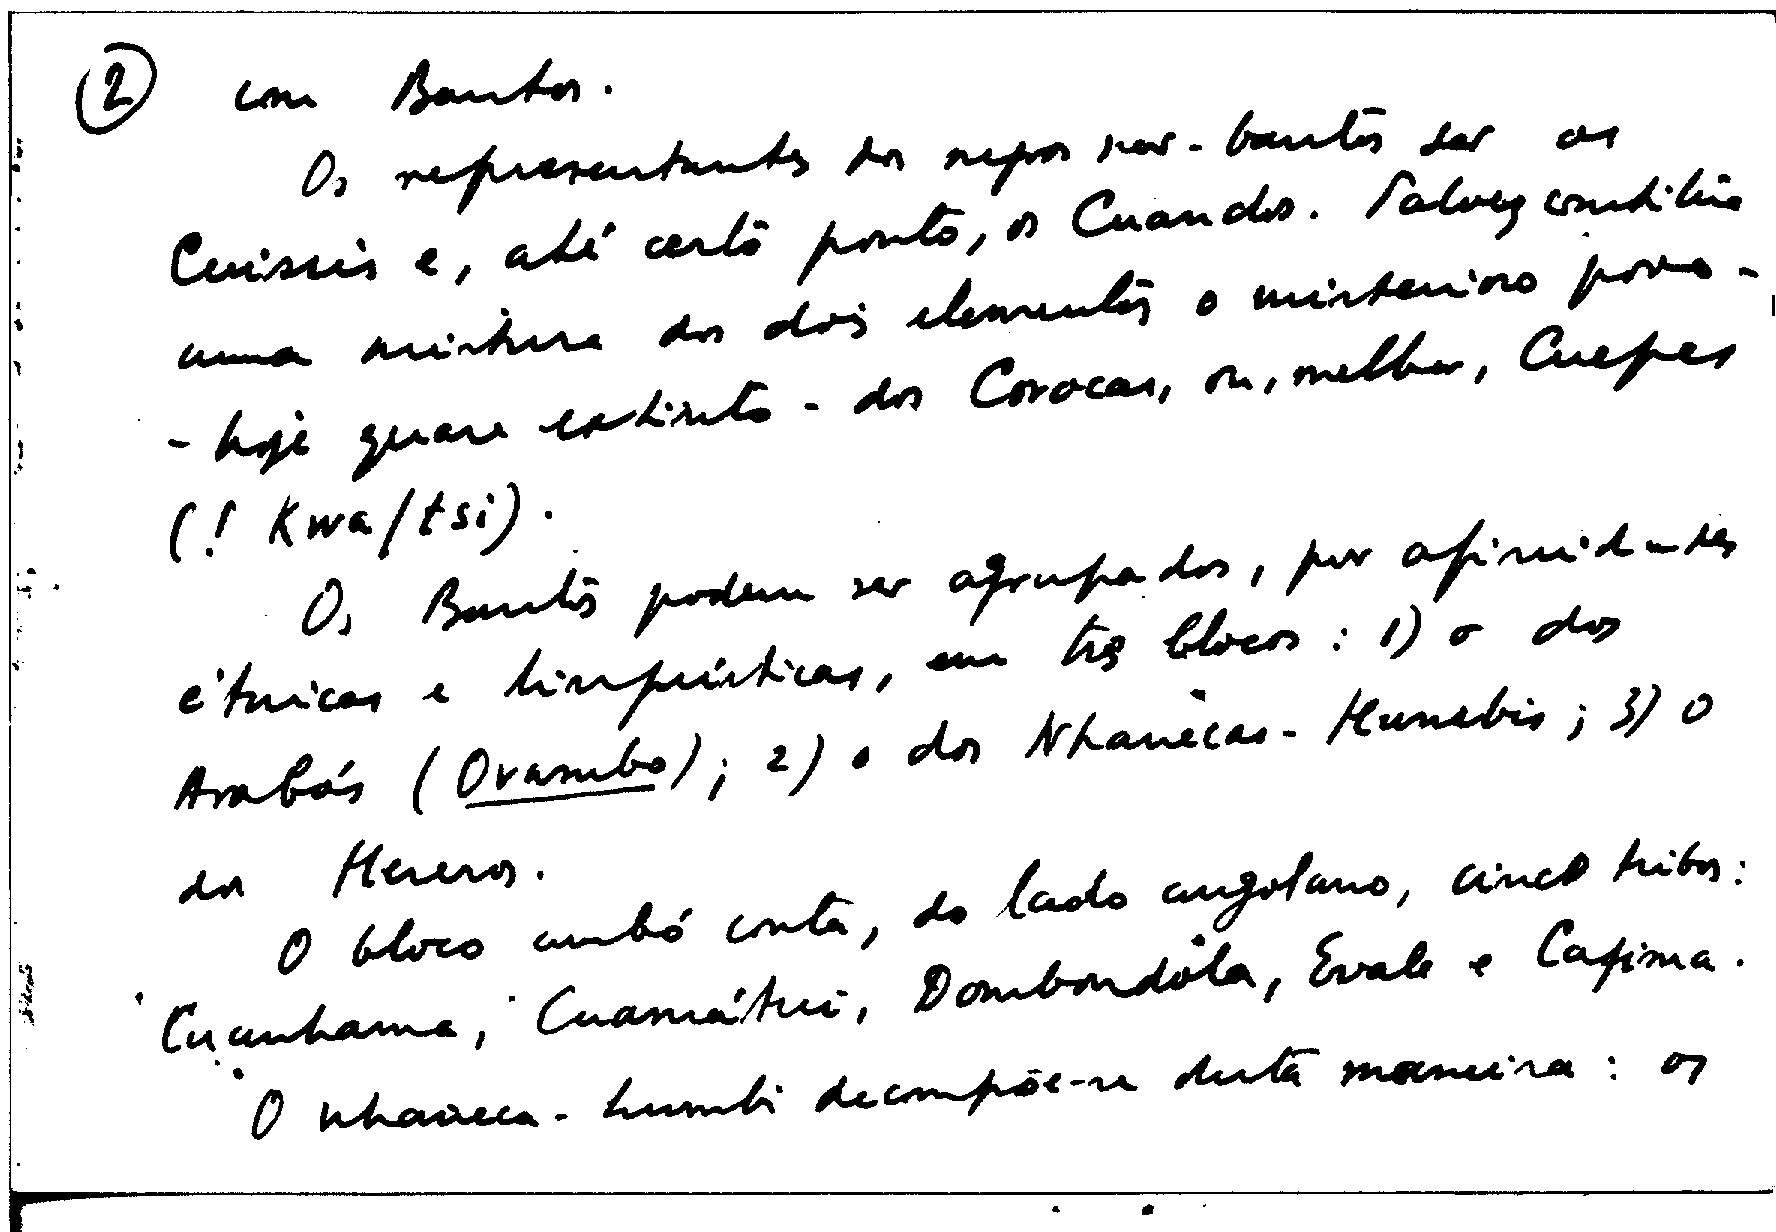 ② com Bantos.
Os representantes dos negros não-bantos são os
Cuissis e, até certo ponto, os Cuandos. Talvez constitua
uma mistura dos dois elementos o misterioso povo -
- hoje quase extinto - dos Corocas, ou, melhor, Cuepes
(! Kwa/tsi).
Os Bantos podem ser agrupados, por afinidades
étnicas e linguísticas, em três blocos : 1) o dos
Ambós (Ovambo) ; 2) o dos Nhanecas-Humbis ; 3) o
dos Hereros.
O bloco ambó conta, do lado angolano, cinco tribos :
Cuanhama, Cuamátui, Dombondola, Evale e Cafima.
O nhaneca-humbi decompõe-se desta maneira : os